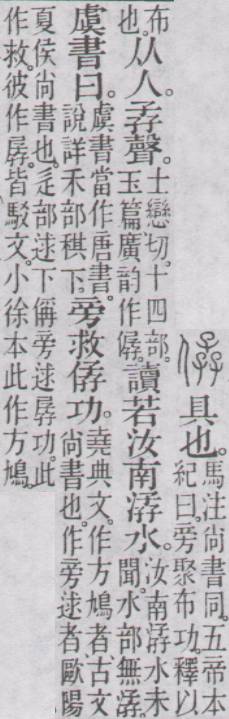 𠊩具也。馬注尚書同。五帝本
紀曰。旁聚布功。釋以
布
也。从人。孨聲。士戀切。十四部。
玉篇廣韵作僝。
讀若汝南潺水。汝南潺水未
聞。水部無潺。
虞書曰。虞書當作唐書。
說詳禾部稘下。
旁救𠊩功。堯典文。作方鳩者、古文
尚書也。作旁逑者、歐陽
夏侯尚書也。辵部逑下偁旁逑孱功。此
作救。彼作孱。皆駮文。小徐本此作方鳩。